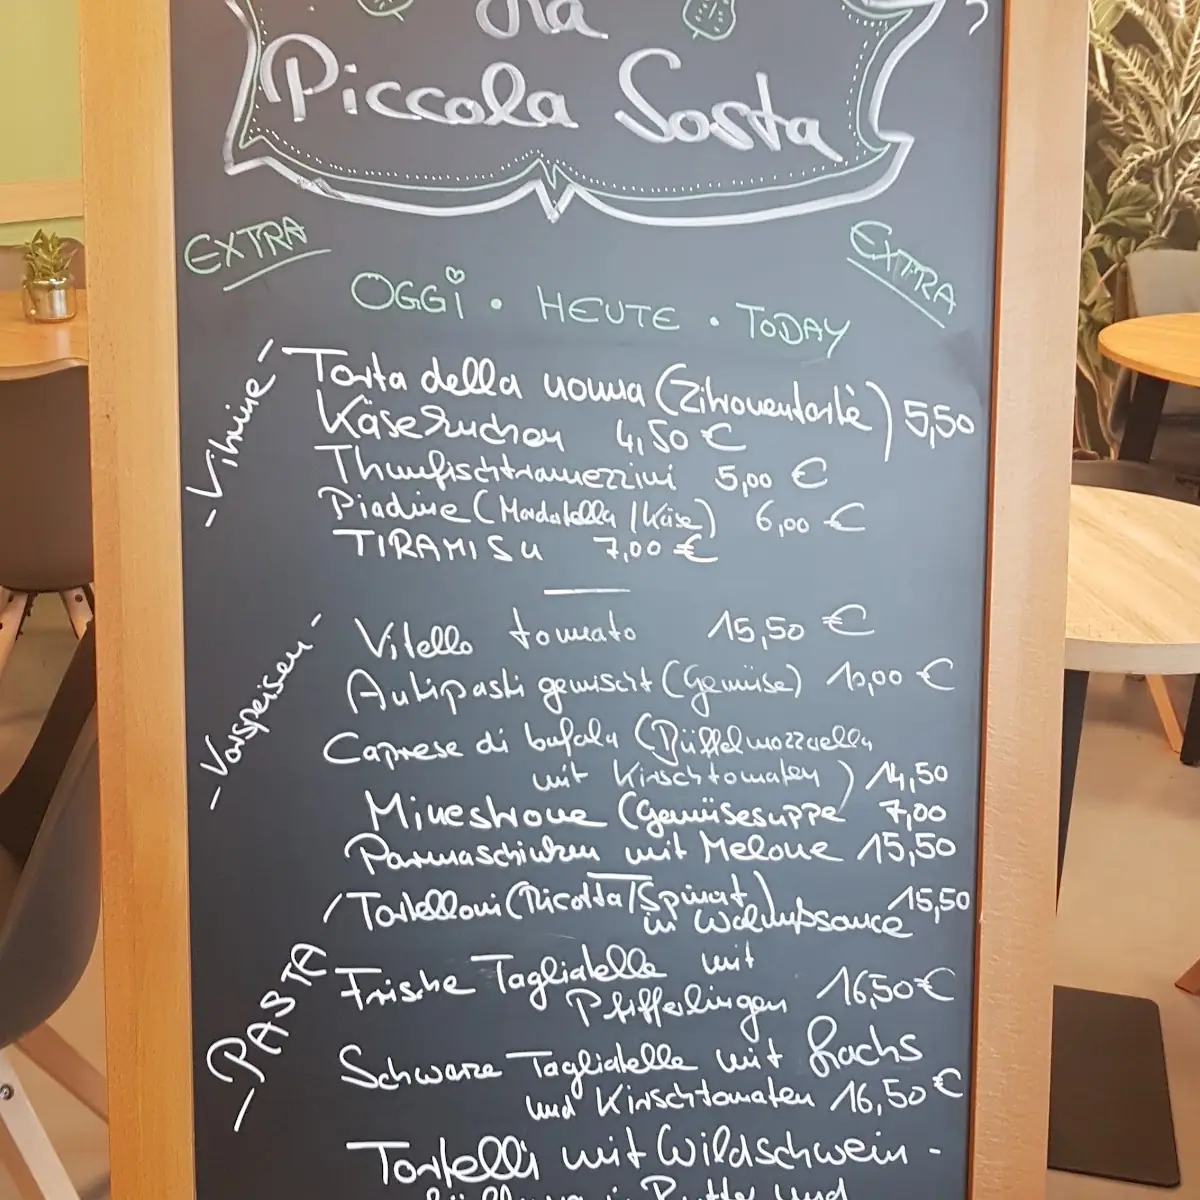 La
Piccola Sosta
EXTRA
EXTRA
OGGi • HEUTE • TODAY
-Vitrine-
Torta della nonna (Zitronentorte) 5,50
Käsekuchen 4,50 €
Thunfischtramezzini 5,00 €
Piadine (Mordatella / Käse) 6,00 €
TIRAMISU 7,00 €
-Vorspeisen-
Vitello tonnato 15,50 €
Antipasti gemischt (Gemüse) 10,00 €
Caprese di bufala (Büffelmozzarella
mit Kirschtomaten) 14,50
Minestrone (Gemüsesuppe 7,00
Parmaschinken mit Melone 15,50
-PASTA
Tortelloni (Ricotta/Spinat)
in Walnußsauce 15,50
Frische Tagliatelle mit
Pfifferlingen 16,50 €
Schwarze Tagliatelle mit Lachs
und Kirschtomaten 16,50 €
Tortelli mit Wildschwein-
in Butter und